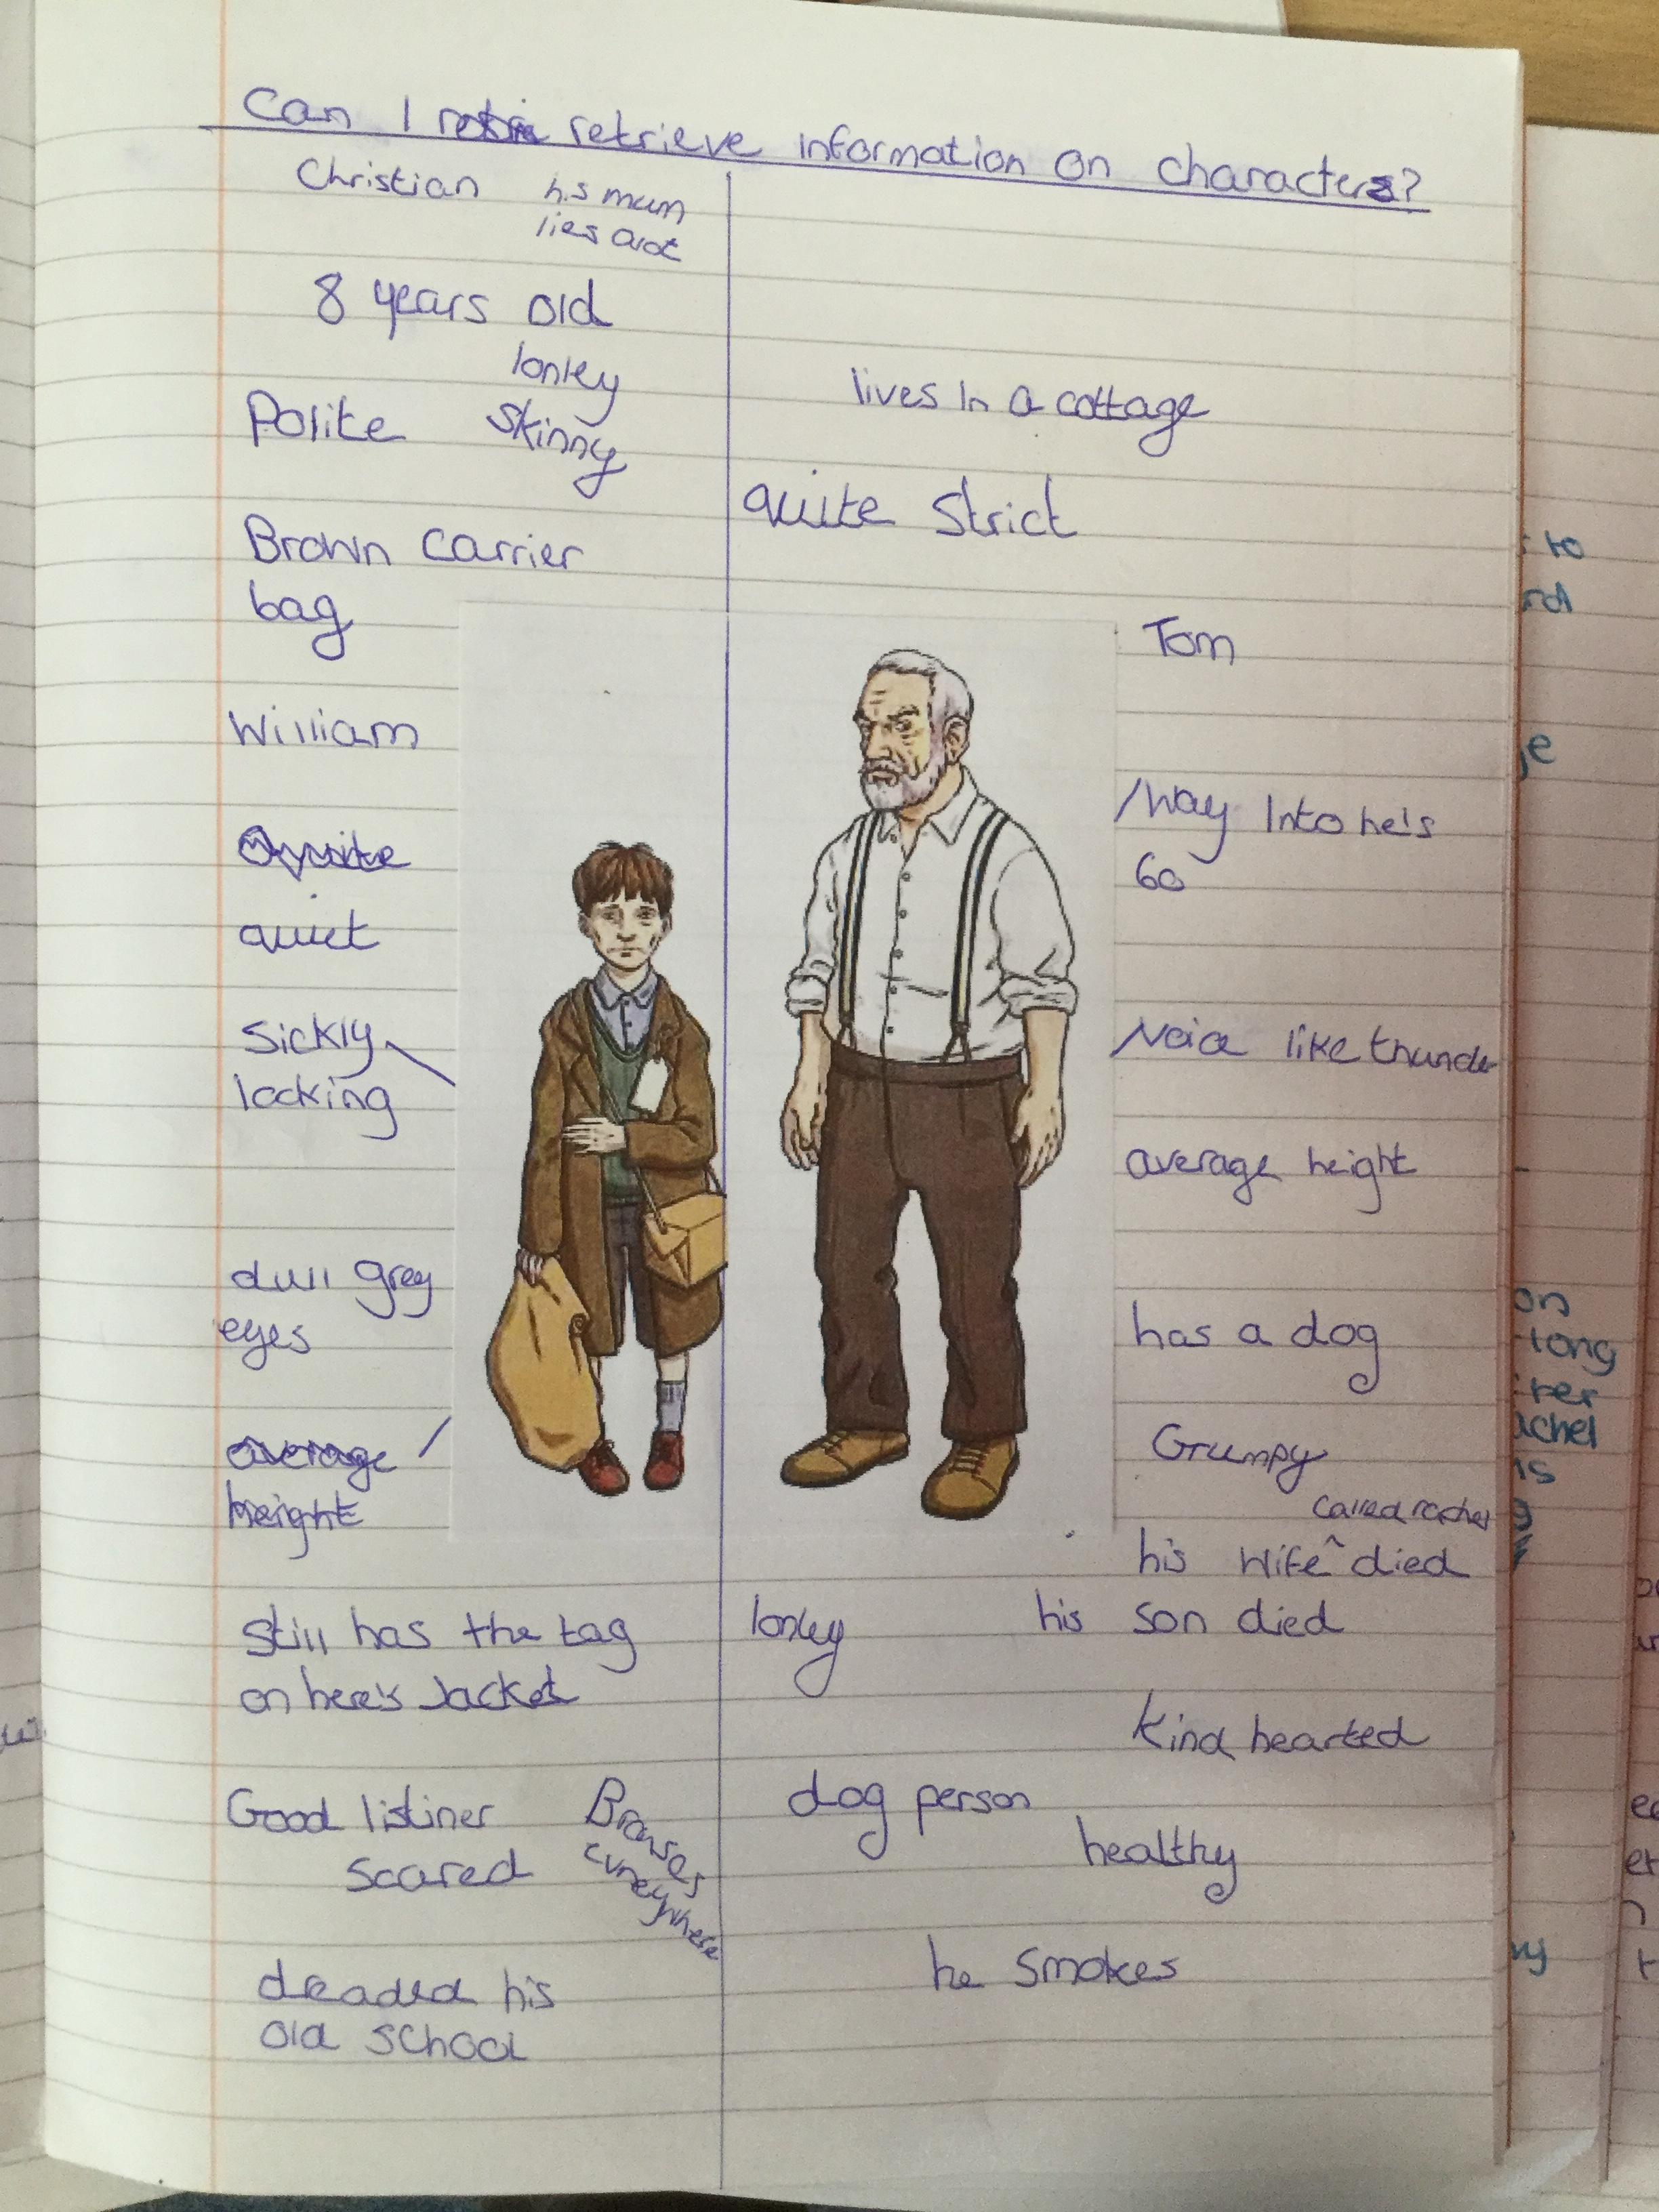 Can I retrieve information on characters?
Christian
his mum
lies alot
8 years old
lonley
Polite
skinny
Brown carrier
bag
William
Quite
quiet
Sickly
looking
dull grey
eyes
average
height
Still has the tag
on here's Jacket
Good listiner
scared
dreaded his
old school
lives In a cottage
quite Strict
Tom
Way Into he's
60
Voice like thunder
average height
has a dog
Grumpy
called rachel
his wife ^ died
lonley
his son died
Kind hearted
dog person
healthy
he smokes
to
on
long
achel